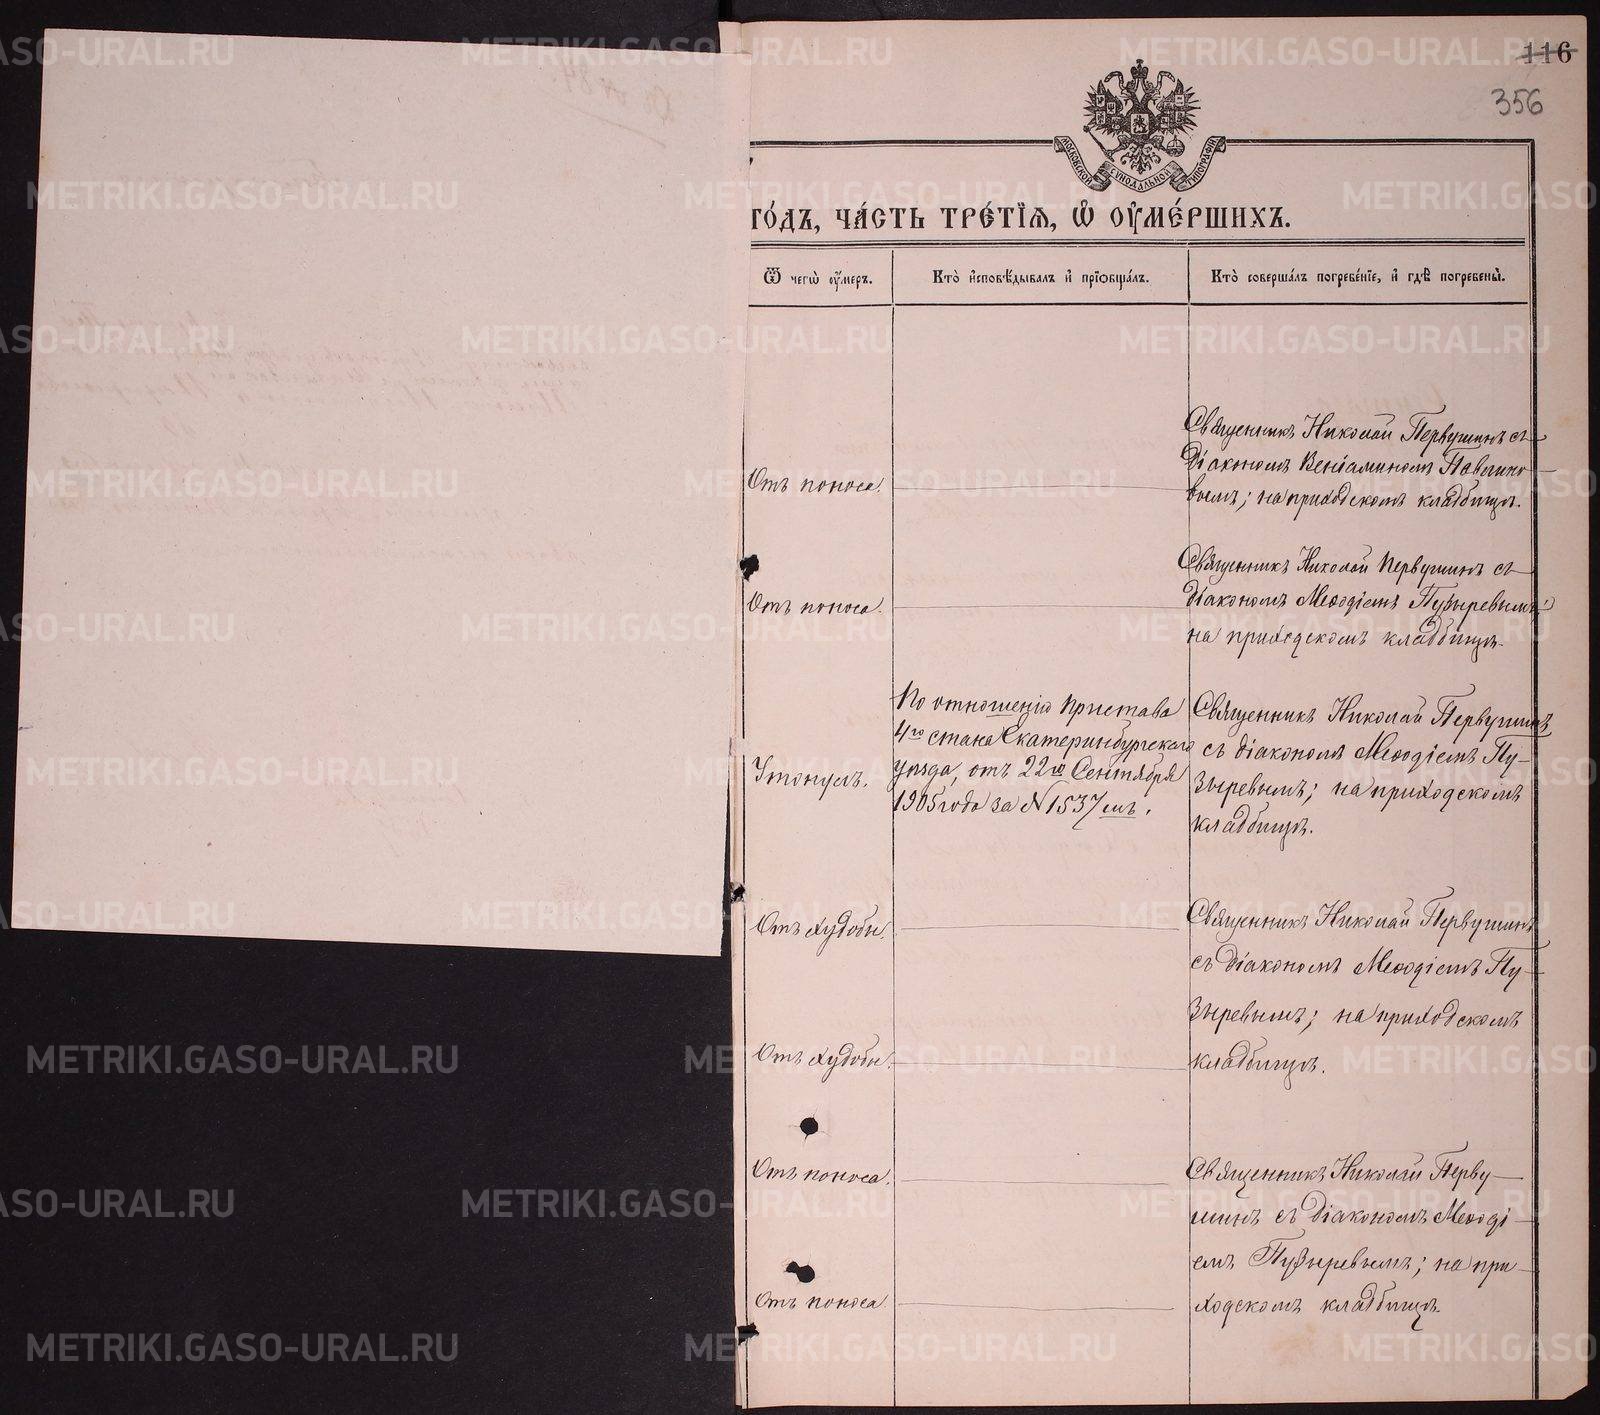 116
356
МОСКОВСКОЙ СѴНОДАЛЬНОЙ ТИПОГРАФІИ
ГО́ДЪ, ЧА́СТЬ ТРЕ́ТІѦ, Ѡ҆ ОУ҆МЕ́РШИХЪ.
Ѿ чегѡ̀ оу҆́меръ.
Кто̀ и҆сповѣ́дывалъ и҆ прїѡбща́лъ.
Кто̀ соверша́лъ погребе́нїе, и҆ гдѣ̀ погребены̀.
Отъ поноса.
Священникъ Николай Первушинъ съ
діакономъ Веніаминомъ Павлино-
вымъ; на приходскомъ кладбищѣ.
Отъ поноса.
Священникъ Николай Первушинъ съ
діакономъ Меѳодіемъ Пузыревымъ;
на приходскомъ кладбищѣ.
Утонулъ.
По отношенію Пристава
4го стана Екатеринбургскаго
уѣзда, отъ 22го Сентября
1905 года за № 1537мъ.
Священникъ Николай Первушинъ
съ діакономъ Меѳодіемъ Пу-
зыревымъ; на приходскомъ
кладбищѣ.
Отъ худобы.
Священникъ Николай Первушинъ
съ діакономъ Меѳодіемъ Пу-
зыревымъ; на приходскомъ
Отъ худобы.
кладбищѣ.
Отъ поноса.
Священникъ Николай Перву-
шинъ съ діакономъ Меѳоді-
емъ Пузыревымъ; на при-
Отъ поноса.
ходскомъ кладбищѣ.
METRIKI.GASO-URAL.RU